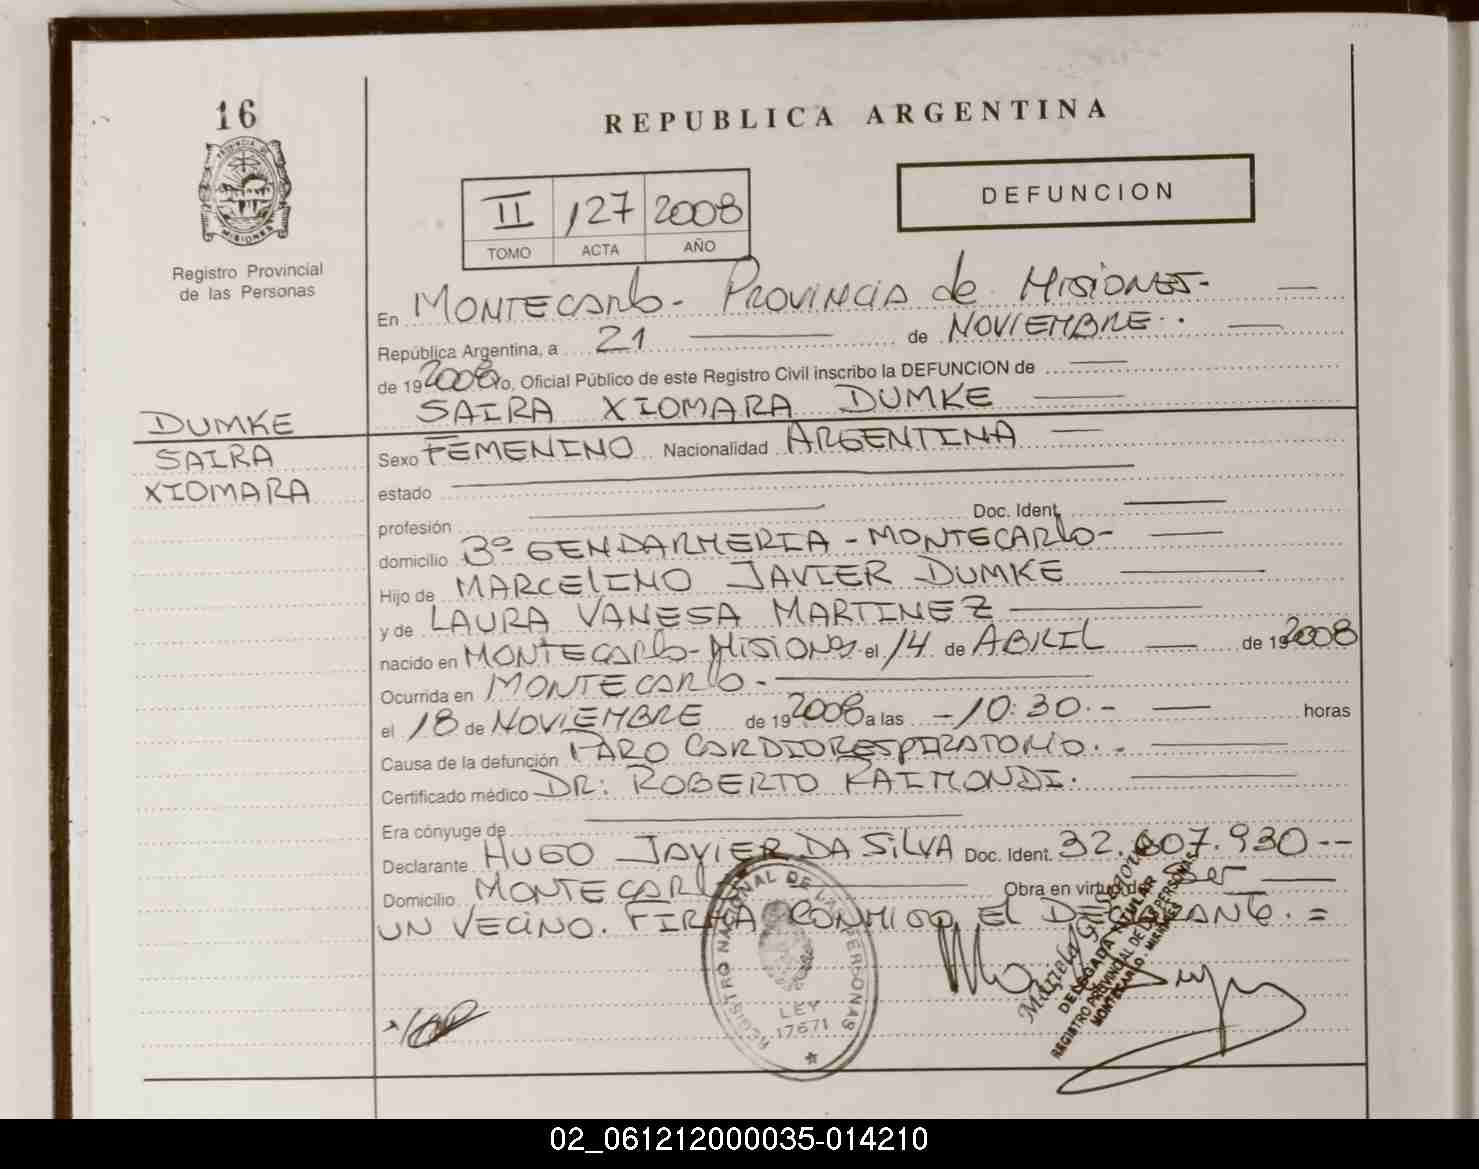 16
PROVINCIA DE
MISIONES
Registro Provincial
de las Personas
REPUBLICA ARGENTINA
II 127 2008
TOMO ACTA AÑO
DEFUNCION
En MONTECARLO - PROVINCIA de MISIONES -
República Argentina, a 21 de NOVIEMBRE
de 19 2008 yo, Oficial Público de este Registro Civil inscribo la DEFUNCION de
SAIRA XIOMARA DUMKE
DUMKE
SAIRA
XIOMARA
Sexo FEMENINO Nacionalidad ARGENTINA
estado
profesión Doc. Ident.
domicilio Bº GENDARMERIA - MONTECARLO -
Hijo de MARCELINO JAVIER DUMKE
y de LAURA VANESA MARTINEZ
nacido en MONTECARLO - MISIONES el 14 de ABRIL de 19 2008
Ocurrida en MONTECARLO -
el 18 de NOVIEMBRE de 19 2008 a las - 10:30 - horas
Causa de la defunción PARO CARDIORESPIRATORIO. -
Certificado médico DR: ROBERTO RAIMONDI.
Era cónyuge de
Declarante HUGO JAVIER DA SILVA Doc. Ident. 32.807.930 --
Domicilio MONTECARLO Obra en virtud de Ser
UN VECINO. FIRMA CONMIGO EL DECLARANTE. =
REGISTRO NACIONAL DE LAS PERSONAS
LEY
17671
DELEGADA TITULAR
REGISTRO PROVINCIAL DE LAS PERSONAS
MONTECARLO - MISIONES
02_061212000035-014210